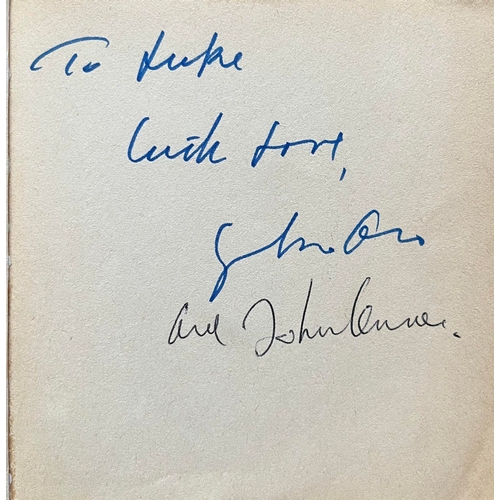 To Luke
with love,
Yoko Ono
and John Lennon.